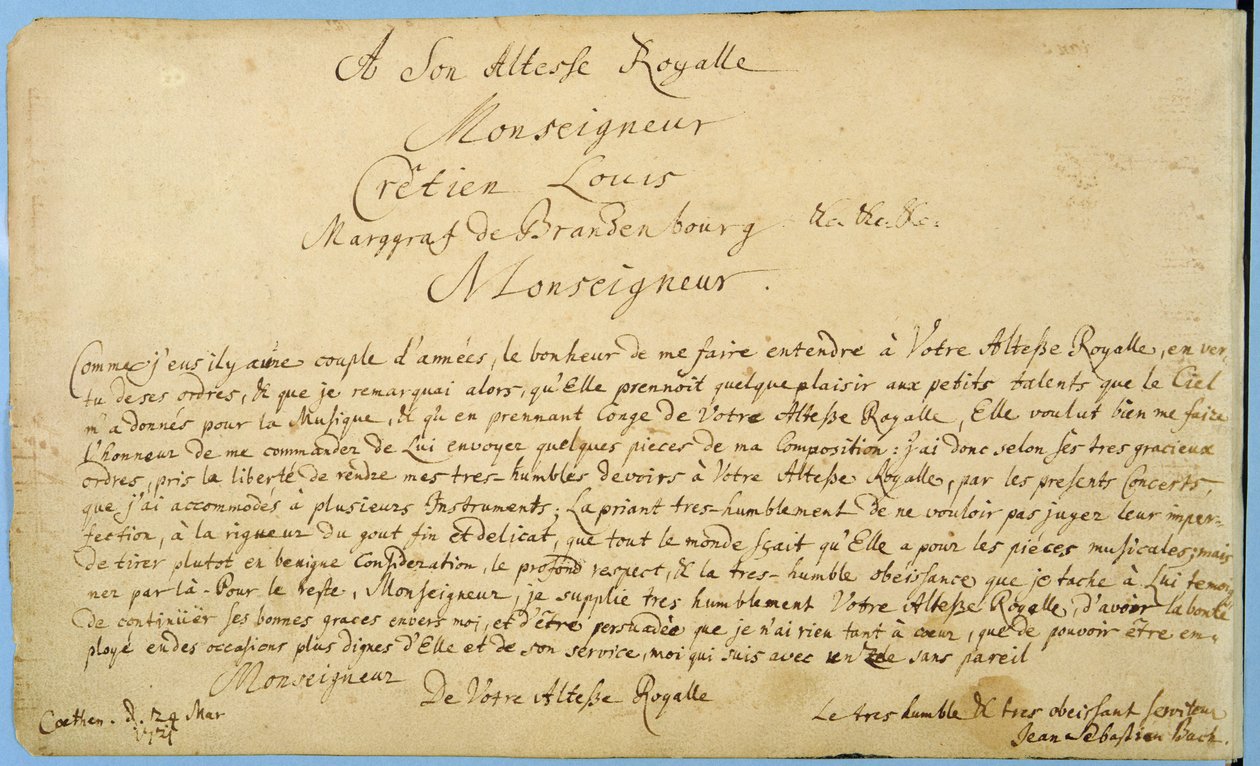 A Son Altesse Royalle
Monseigneur
Crêtien Louis
Marggraf de Brandenbourg &c. &c. &c.
Monseigneur.
Comme j'eus il y a une couple d'années, le bonheur de me faire entendre à Votre Alteße Royalle, en ver-
tu de ses ordres, & que je remarquai alors, qu'Elle prennoit quelque plaisir aux petits talents que le Ciel
m'a donnés pour la Musique, & qu'en prennant Conge de Votre Alteße Royalle, Elle voulut bien me faire
l'honneur de me commander de Lui envoyer quelques pieces de ma Composition: j'ai donc selon ses tres gracieux
ordres, pris la liberté de rendre mes tres-humbles devoirs à Votre Alteße Royalle, par les presents Concerts,
que j'ai accommodés à plusieurs Instruments; La priant tres-humblement de ne vouloir pas juger leur imper-
fection, à la rigueur du gout fin et delicat, que tout le monde sçait qu'Elle a pour les piéces musicales; mais
de tirer plutot en benigne Consideration, le profond respect, & la tres-humble obeissance que je tache à Lui temoig-
ner par là. Pour le reste, Monseigneur, je supplie tres humblement Votre Alteße Royalle, d'avoir la bonté
de continüer ses bonnes graces envers moi, et d'être persuadée que je n'ai rien tant à cœur, que de pouvoir être em-
ployé en des occasions plus dignes d'Elle et de son service, moi qui suis avec un zele sans pareil
Monseigneur
De Votre Alteße Royalle
Coethen. d. 24 Mar
1721
Le tres humble & tres obeissant serviteur
Jean Sebastien Bach.